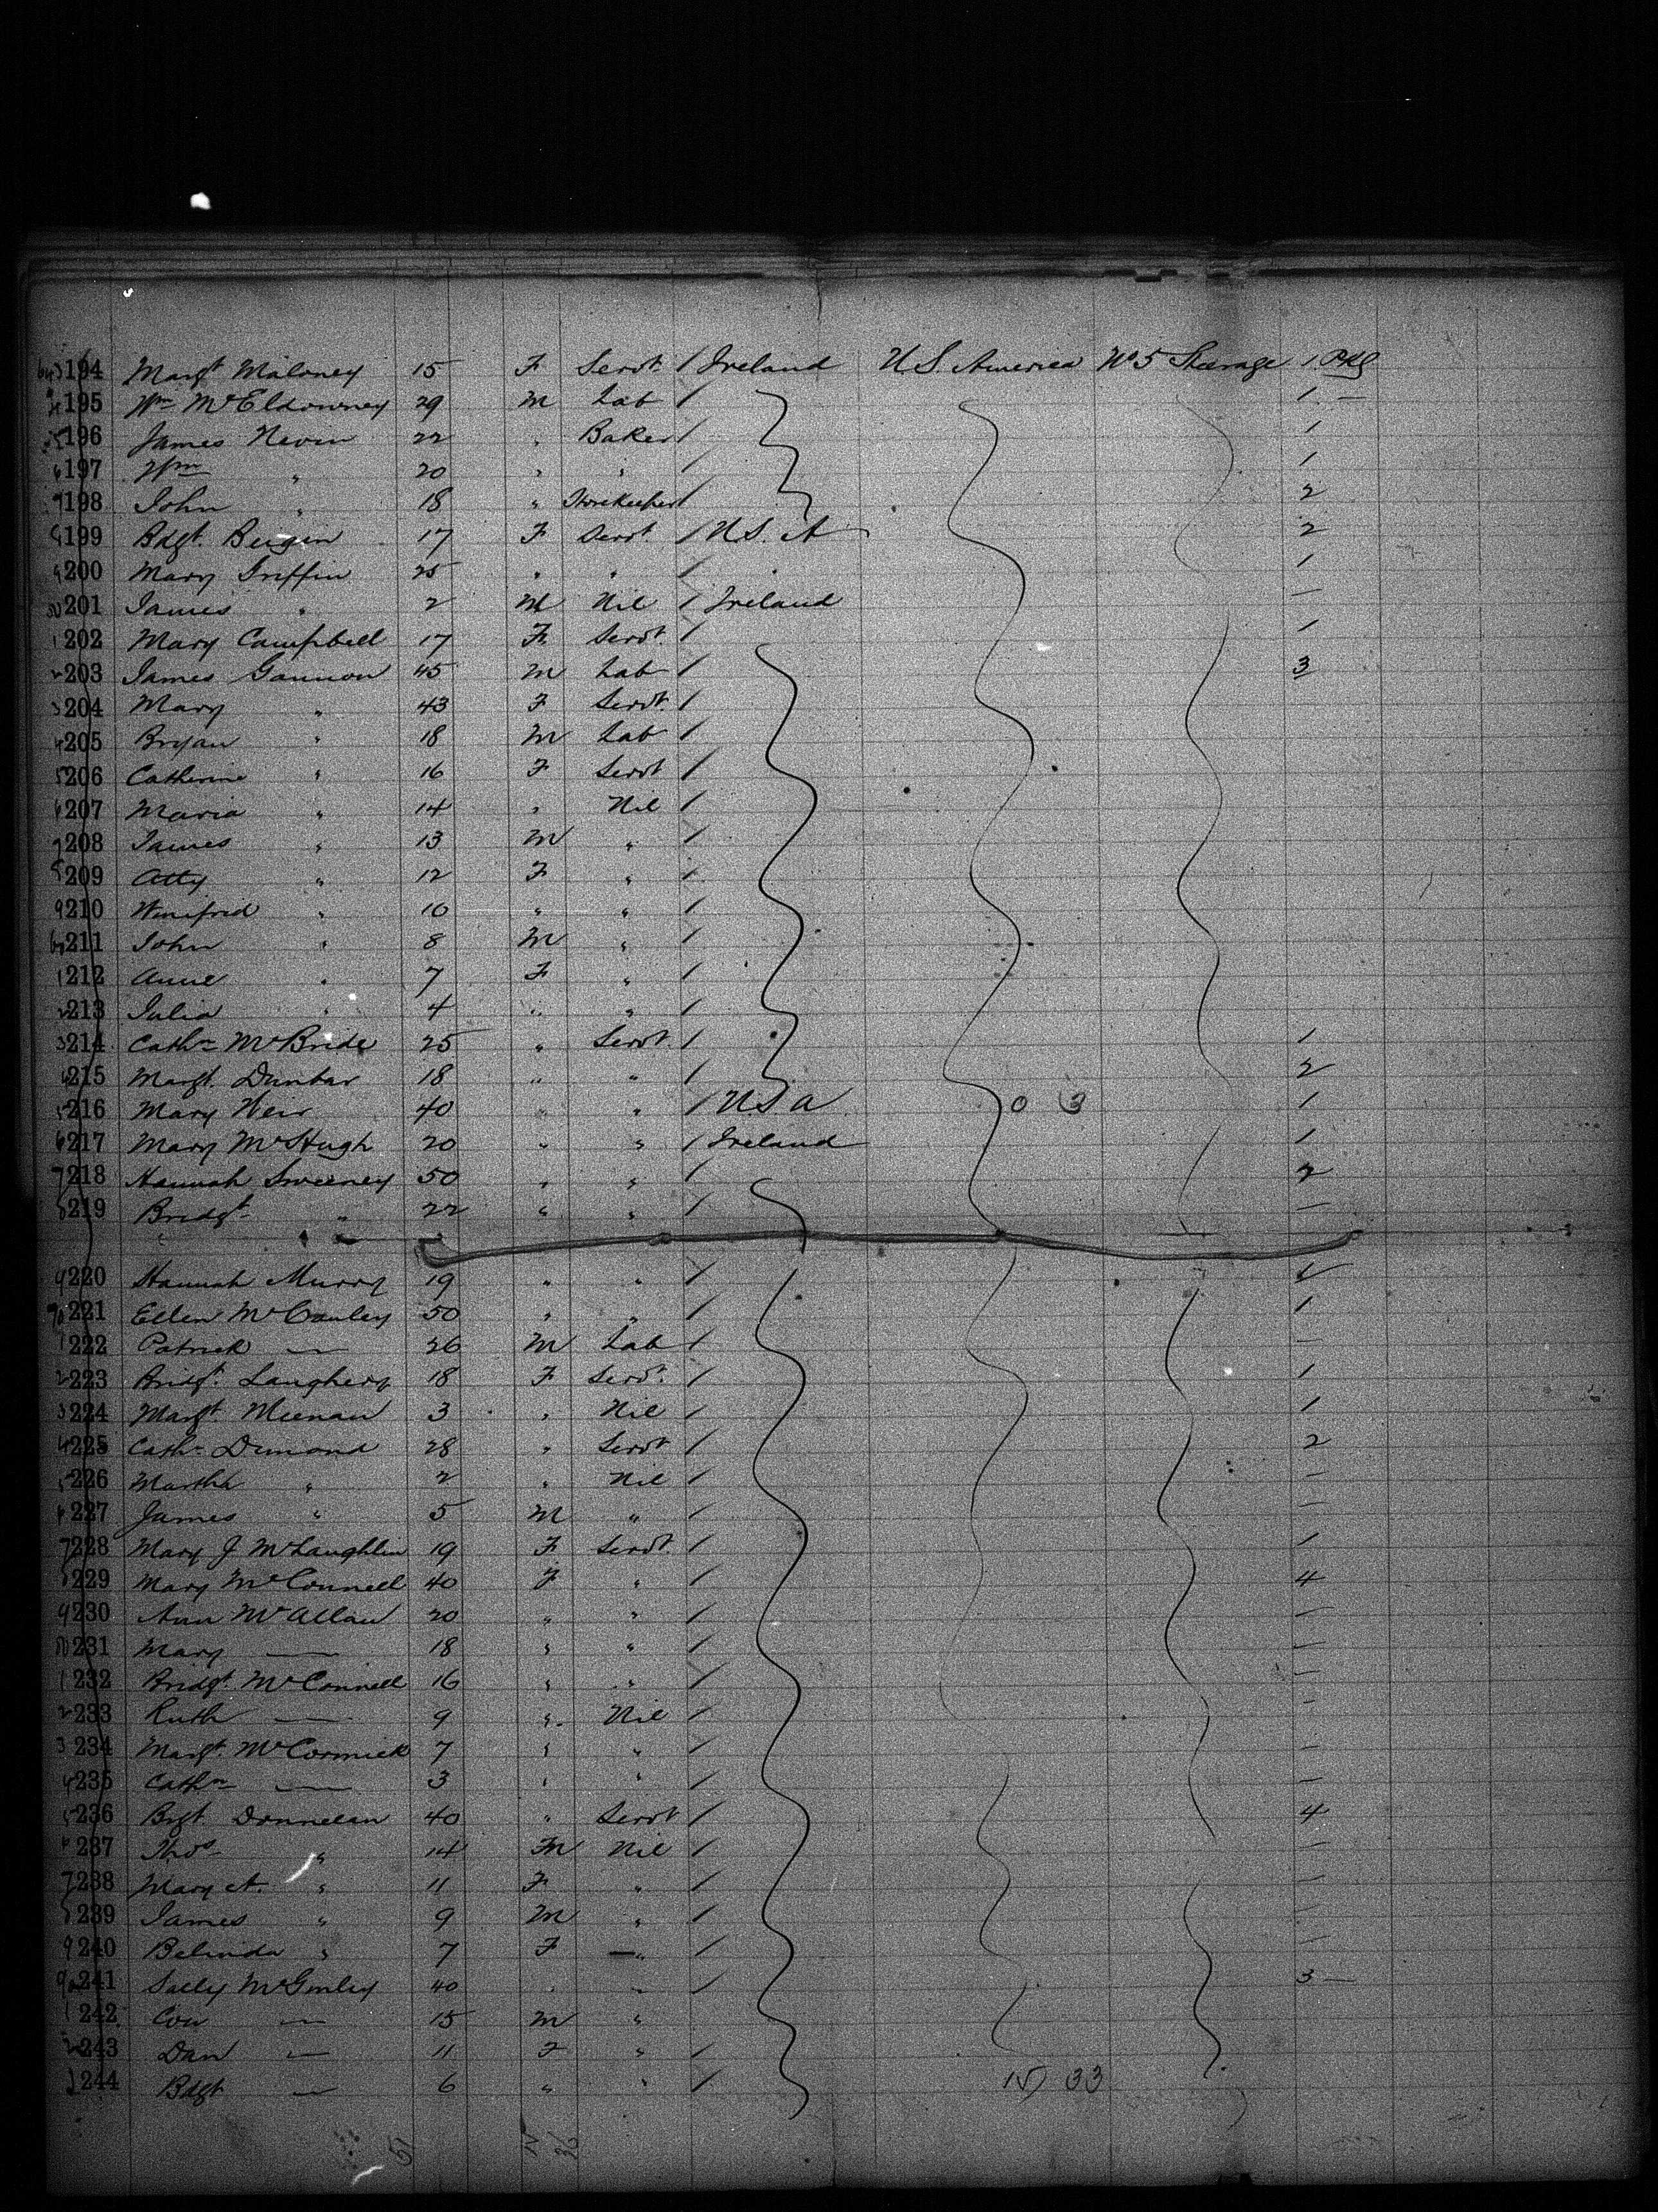 194 Margt Maloney 15 F Servt / Ireland U.S. America No 5 Steerage 1 Pkg
195 Wm McEldowney 29 M Lab / 1 —
196 James Nevin 22 " Baker / 1
197 Wm " 20 " " / 1
198 John " 18 " Storekeeper / 2
199 Bdgt. Bergin 17 F Servt / U.S. A 2
200 Mary Griffin 25 " " / 1
201 James " 2 M Nil / Ireland —
202 Mary Campbell 17 F Servt / 1
203 James Gannon 45 M Lab / 3
204 Mary " 43 F Servt /
205 Bryan " 18 M Lab /
206 Catherine " 16 F Servt /
207 Maria " 14 " Nil /
208 James " 13 M " /
209 Atty " 12 F " /
210 Winifred " 10 " " /
211 John " 8 M " /
212 Anne " 7 F " /
213 Julia " 4 " " /
214 Cathn McBride 25 " Servt / 1
215 Margt. Dunbar 18 " " / 2
216 Mary Weir 40 " " / U S A 0 3 1
217 Mary McHugh 20 " " / Ireland 1
218 Hannah Sweeney 50 " " / 2
219 Bridgt " 22 " " / —
220 Hannah Murry 19 " " / 1
221 Ellen McCauley 50 " " / 1
222 Patrick — 26 M Lab / —
223 Bridgt. Laughery 18 F Servt. / 1
224 Margt Meenan 3 " Nil / 1
225 Cathn Dimond 28 " Servt / 2
226 Martha " 2 " Nil / —
227 James " 5 M " / —
228 Mary J McLaughlin 19 F Servt / 1
229 Mary McConnell 40 F " / 4
230 Ann McAllan 20 " " / —
231 Mary — 18 " " / —
232 Bridgt. McConnell 16 " " / —
233 Ruth — 9 " Nil / —
234 Margt. McCormick 7 " " / —
235 Cathn — 3 " " / —
236 Bgt Donnelan 40 " Servt / 4
237 Thos " 14 M Nil / —
238 Mary A. " 11 F " / —
239 James " 9 M " /
240 Belinda " 7 F " / —
241 Sally McGinley 40 " " / 3 —
242 Con — 15 M "
243 Dan — 11 F " /
244 Bdgt — 6 " " / 15) 33